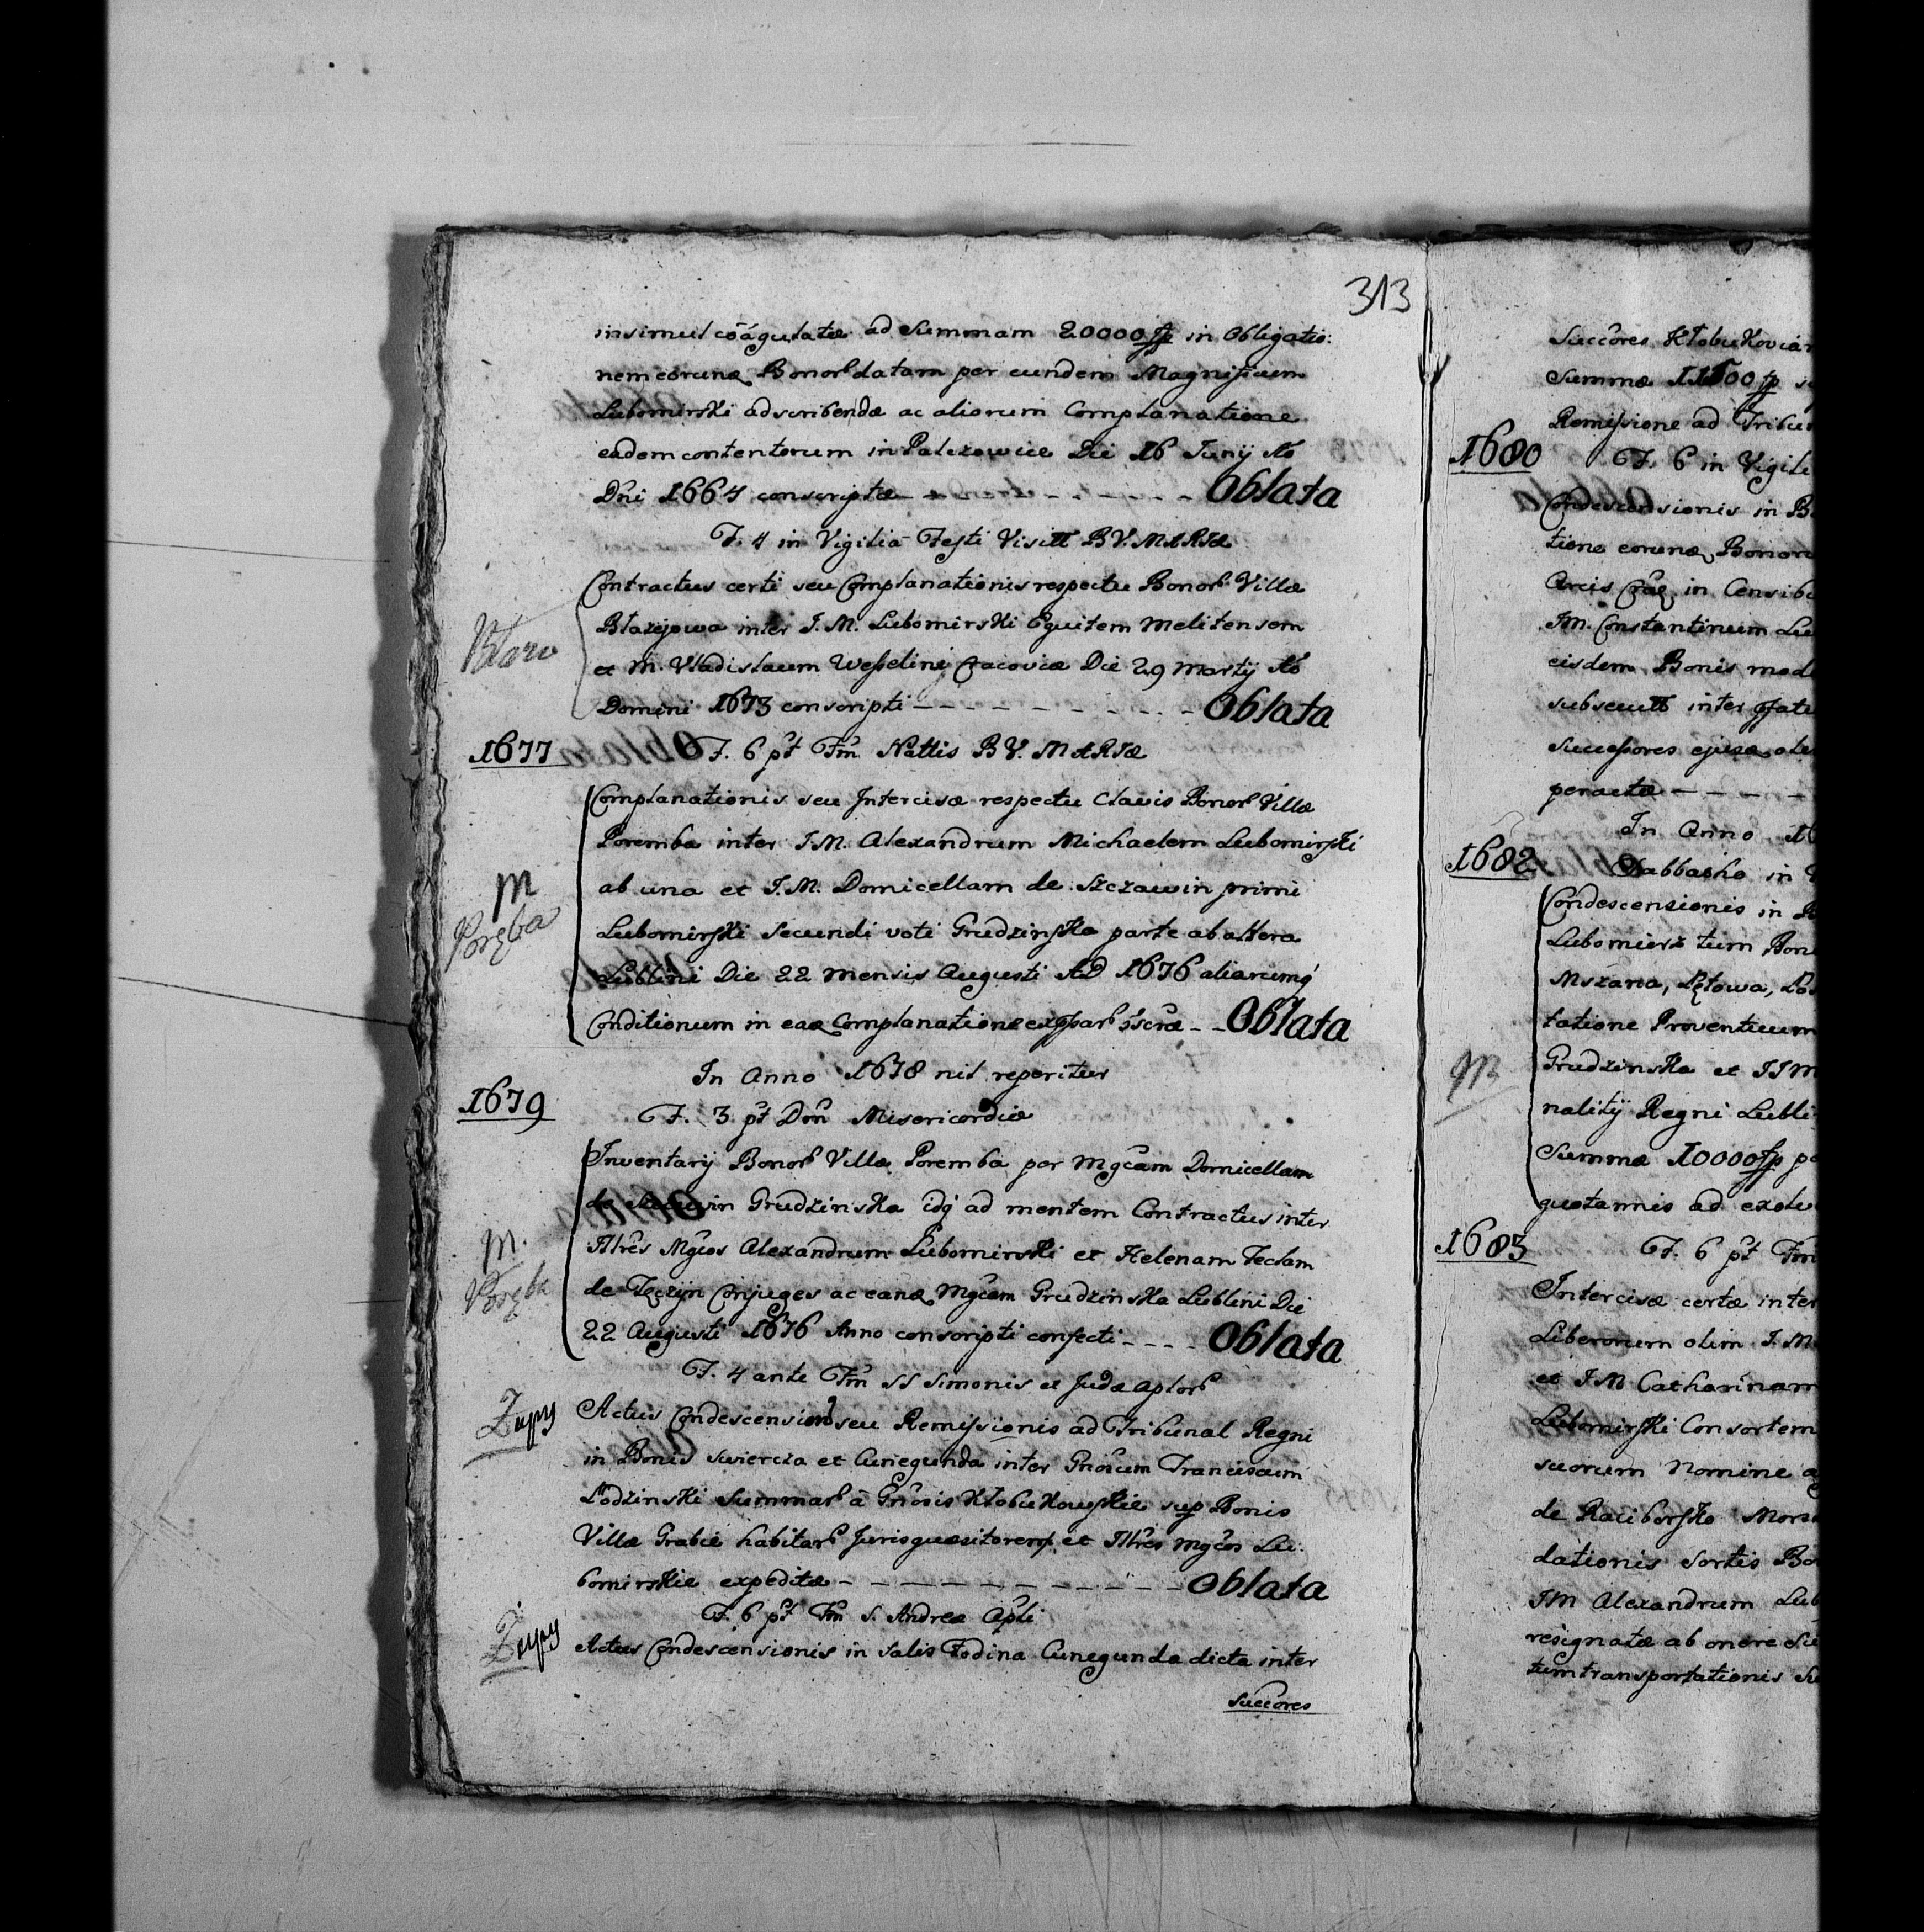 313
insimul cōágulatæ ad Summam 20000 fp in Obligatio:
nem eorund Bonor datam per eundem Magnificum
Lubomirski adscribendæ ac aliorum Complanatione
eadem contentorum in Palczowice Die 16 Junij Ao
Dni 1664 conscriptæ - - - - - - - Oblata
F. 4 in Vigilia Festi Visitt B V. MARIæ
Contractus certi seu Complanationis respectu Bonor Villæ
Błażejowa inter I. M. Lubomirski Equitem Melitensem
et M. Vladislaum Wesselini Cracoviæ Die 29 Martij Ao
Domini 1673 conscripti - - - - - - - - - Oblata
1677
F. 6 pt Fm Nattis B V. MARIæ
Complanationis seu Intercisæ respectu Clavis Bonor Villæ
Poremba inter I.M. Alexandrum Michaelem Lubomirski
M
Poręba
ab una et I.M. Domicellam de Szczawin primi
Lubomirski Secundi voti Grudzinska parte ab altera
Lublini Die 22 Mensis Augusti AD 1676 aliarumq
Conditionum in ead Complanatione - - Oblata
In Anno 1678 nil reperitur
1679
F. 3 pt Dom Misericordiæ
Inventarij Bonor Villæ Poremba per Mgcam Domicellam
de Szczawin Grudzinska idq ad mentem Contractus inter
M.
Poręba
Illres Mgcos Alexandrum Lubomirski et Helenam Teclam
de Tęczyn Conjuges ac eand Mgcam Grudzinska Lublini Die
22 Augusti 1676 Anno conscripti confecti - - - - Oblata
F. 4 ante Fm SS Simonis et Judæ Aptor
Żupy
Actus Condescension seu Remissionis ad Tribunal Regni
in Bonis Swiercza et Cunegunda inter Gnosum Franciscum
Łodzinski Summar à Gnosis Kłobukowskie sup Bonis
Villæ Grabie habitar Jurisquæsitorem et Illres Mgcos Lu:
bomirskie expeditæ - - - - - - - - - - - Oblata
F. 6 pt Fm S. Andreæ Apli
Żupy
Actus Condescensionis in Salis Fodina Cunegunda dicta inter
Succores
Succores
Summæ 11500 fp
Remissione ad
1680
F. 6 in
Condescensionis in
tione eorund
Arcis in
IM. Constantinum
eisdem Bonis
inter
Successores
peractæ - - - -
In Anno
1682
Sabbatho in
Condescensionis in
Lubomierz tum
Mszana, Łętowa,
tatione Proventuum
M
Grudzinska et
nalitij Regni
Summæ 10000 fp
quotannis ad
1685
F. 6 pt Fm
Intercisæ certæ inter
Liberorum olim I. M
et I M Catharinam
Lubomirski Consortem
suorum Nomine
de Raciborsko
dationis Sortis
IM Alexandrum
resignatæ ab onere
tum transportationis